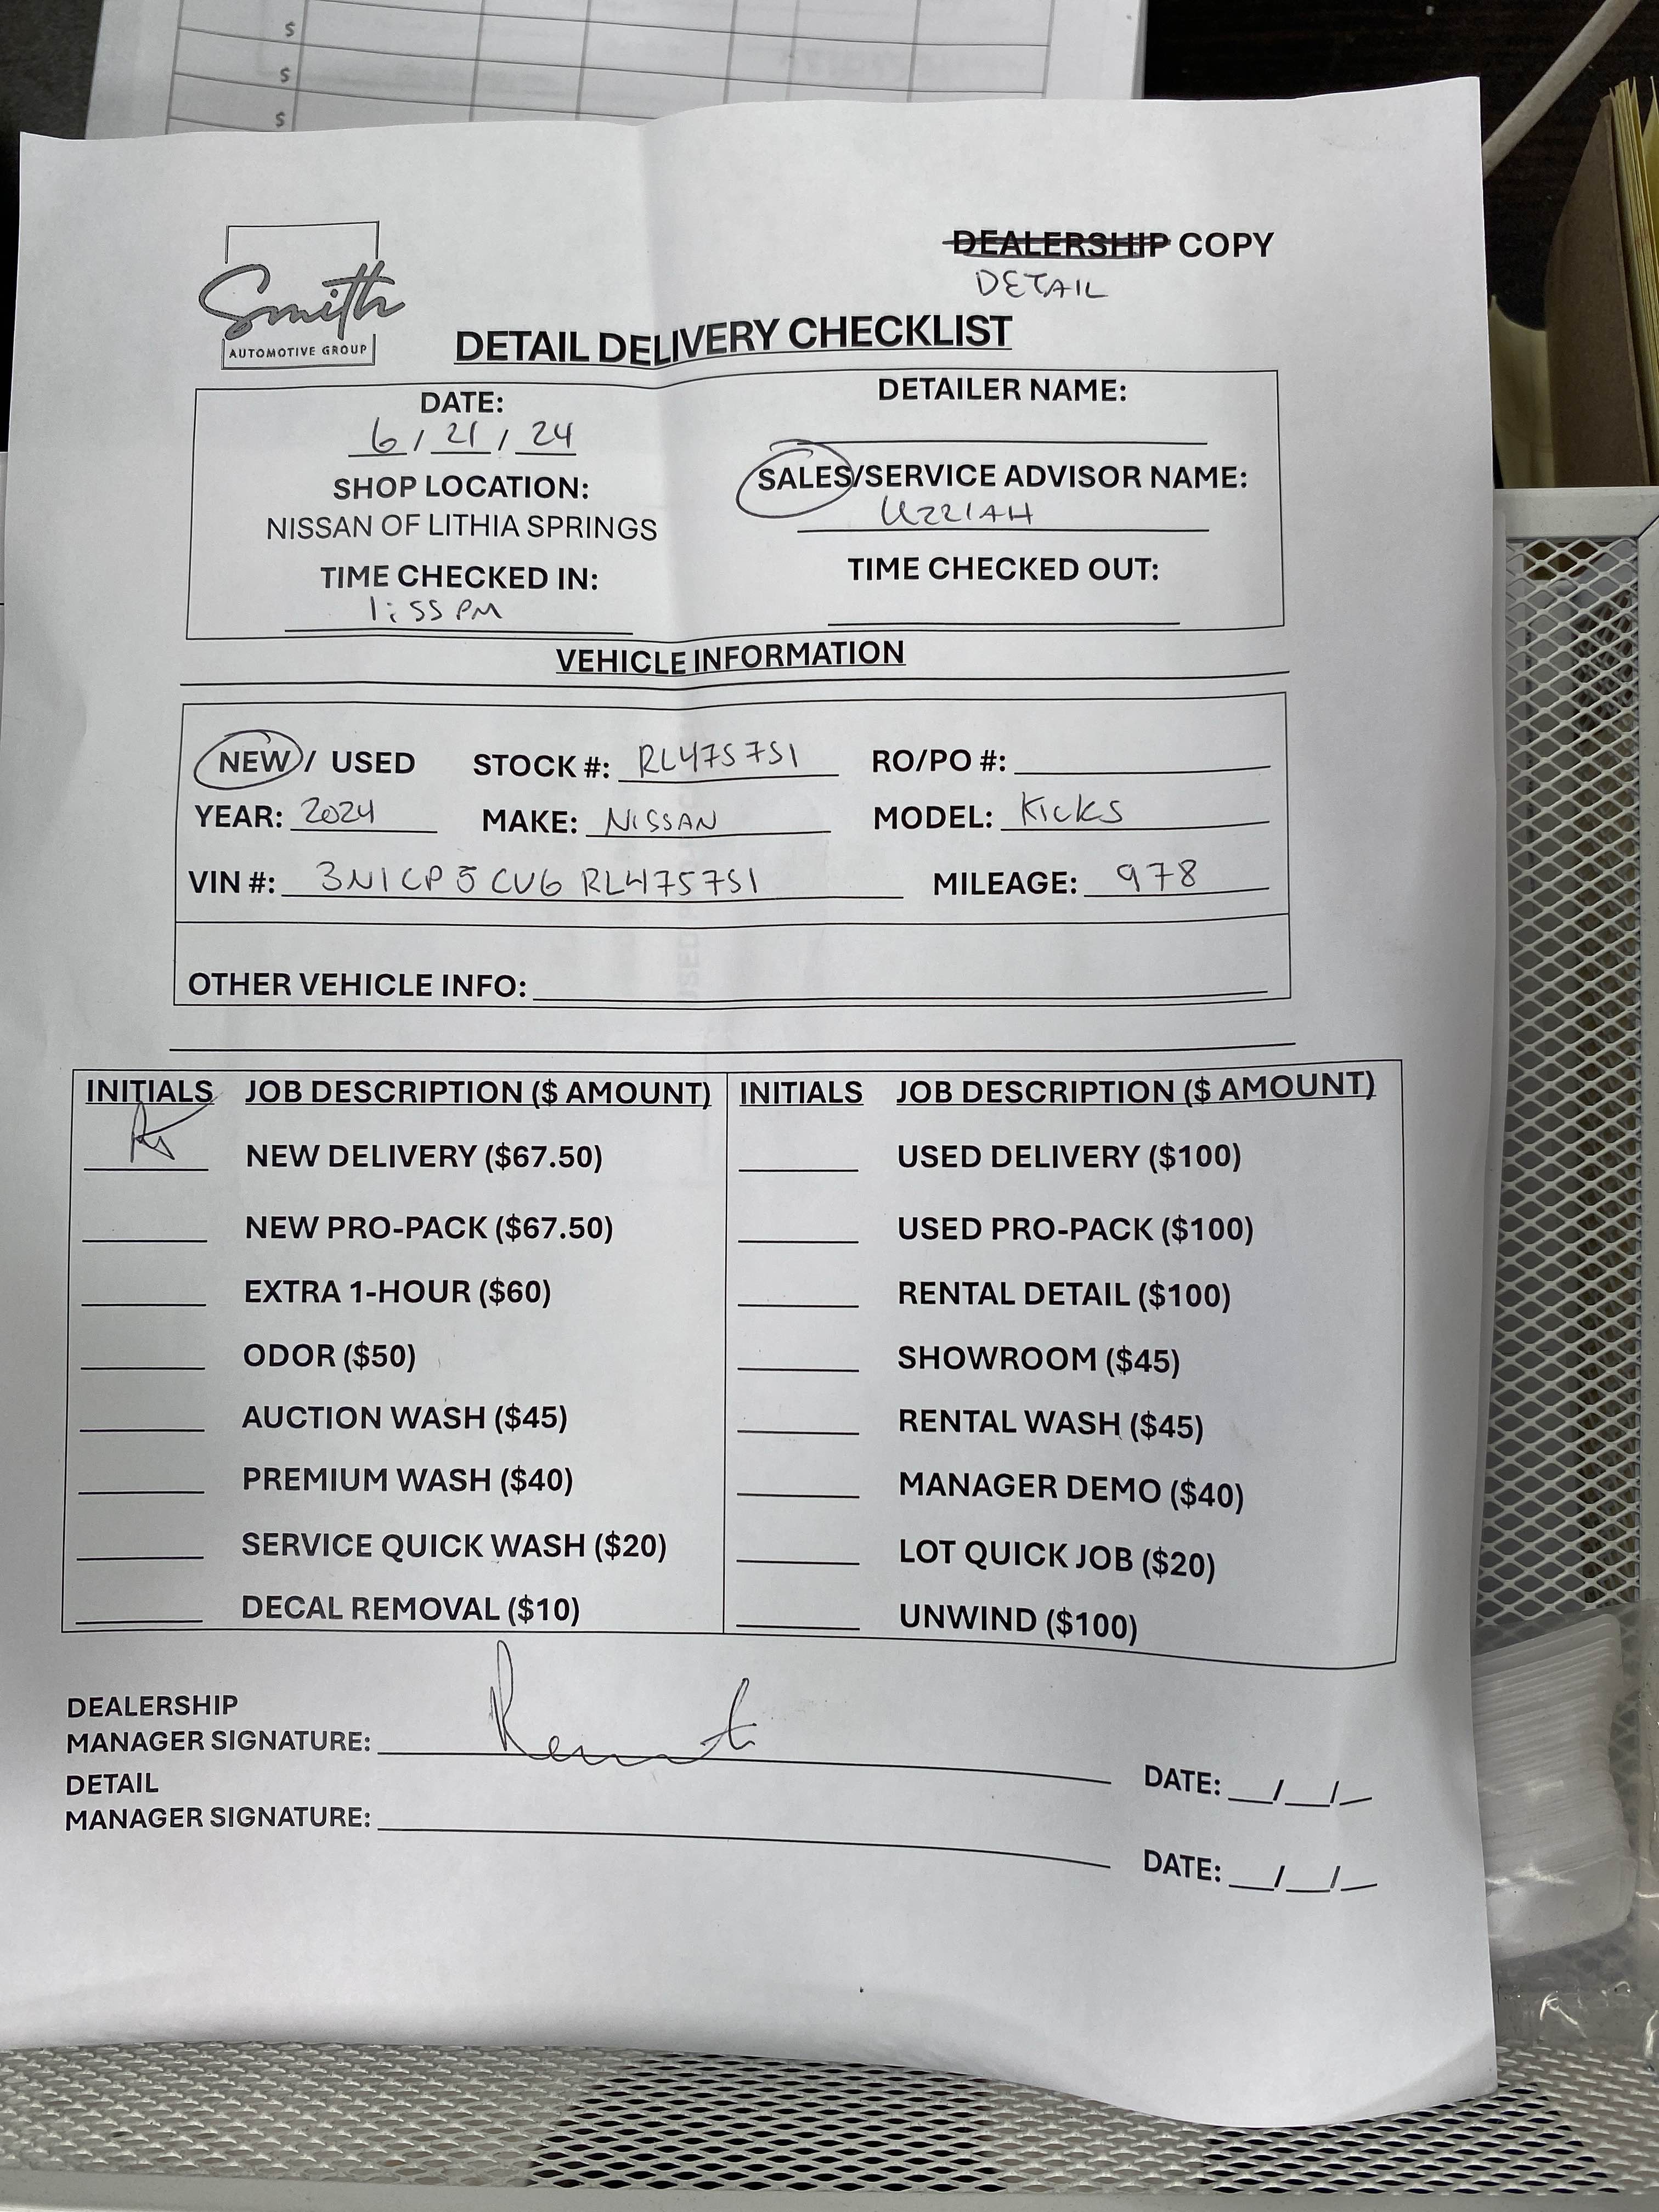 $
$
$
Smith
AUTOMOTIVE GROUP
DEALERSHIP COPY
DETAIL
DETAIL DELIVERY CHECKLIST
DATE:
6 / 21 / 24
DETAILER NAME:
SHOP LOCATION:
NISSAN OF LITHIA SPRINGS
SALES/SERVICE ADVISOR NAME:
UZZIAH
TIME CHECKED IN:
1:55 PM
TIME CHECKED OUT:
VEHICLE INFORMATION
NEW / USED STOCK #: RL475751 RO/PO #:
YEAR: 2024 MAKE: NISSAN MODEL: KICKS
VIN #: 3N1CP5CV6RL475751 MILEAGE: 978
OTHER VEHICLE INFO:
INITIALS JOB DESCRIPTION ($ AMOUNT) INITIALS JOB DESCRIPTION ($ AMOUNT)
NEW DELIVERY ($67.50) USED DELIVERY ($100)
NEW PRO-PACK ($67.50) USED PRO-PACK ($100)
EXTRA 1-HOUR ($60) RENTAL DETAIL ($100)
ODOR ($50) SHOWROOM ($45)
AUCTION WASH ($45) RENTAL WASH ($45)
PREMIUM WASH ($40) MANAGER DEMO ($40)
SERVICE QUICK WASH ($20) LOT QUICK JOB ($20)
DECAL REMOVAL ($10) UNWIND ($100)
DEALERSHIP
MANAGER SIGNATURE: DATE: __/__/__
DETAIL
MANAGER SIGNATURE: DATE: __/__/__